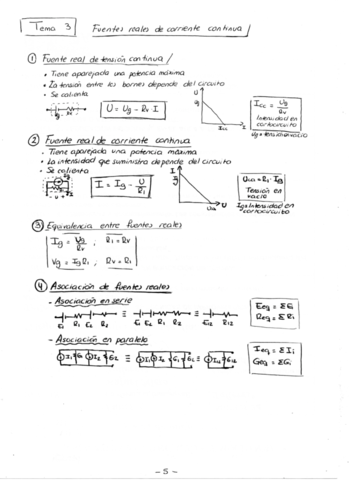 Tema 3
Fuentes reales de corriente continua
① Fuente real de tensión continua
• Tiene aparejada una potencia máxima
• La tensión entre los bornes depende del circuito
• Se calienta
U = Ug - Rv I
U
Ug
Icc
I
Icc = Ug/Rv
Intensidad en
cortocircuito
Ug = tensión vacío
② Fuente real de corriente continua
• Tiene aparejada una potencia máxima
• La intensidad que suministra depende del circuito
• Se calienta
I = Ig - U/Ri
I
Ig
U
Ucc = Ri · Ig
Tensión en
vacío
Ig = Intensidad en
cortocircuito
③ Equivalencia entre fuentes reales
Ig = Vg/Rv ; Ri = Rv
Vg = Ig Ri ; Rv = Ri
④ Asociación de fuentes reales
- Asociación en serie
E1 R1 E2 R2 ≡ E1 E2 R1 R2 ≡ E12 R12
Eeq = ΣEi
Req = ΣRi
- Asociación en paralelo
I1 G1 I2 G2 ≡ I1 I2 G1 G2 ≡ I12 G12
Ieq = ΣIi
Geq = ΣGi
- 5 -